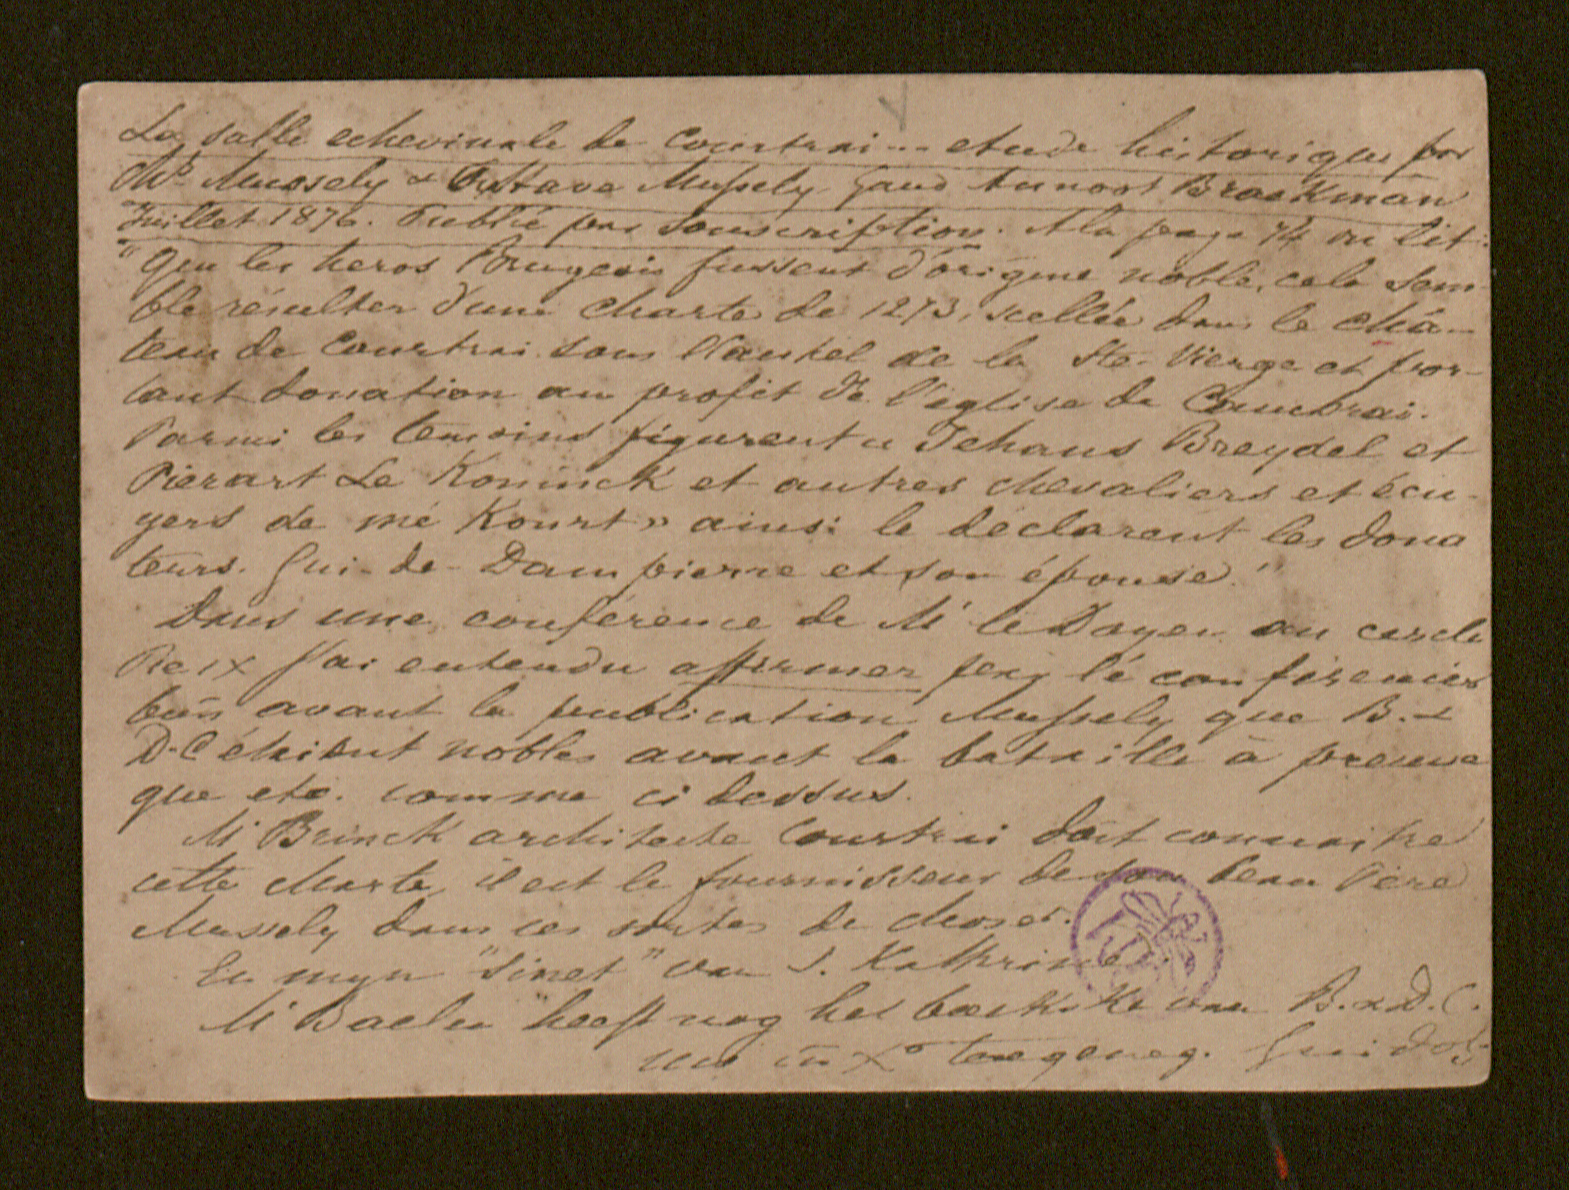 La salle echevinale de Courtrai — etude historique par
Ch<sup>s</sup> Mussely & Gustave Mussely Gand Annoot Braekman
Juillet 1876. Publié par Souscription. A la page 74 on lit:
"Que les heros Brugeois fussent d'origine noble, cela sem-
ble résulter d'une charte de 1273, scellée dans le châ-
teau de Courtrai sous l'autel de la Ste. Vierge et por-
tant donation au profit de l'église de Cambrai.
Parmi les temoins figurent « Jehans Breydel et
Pierart Le Koninck et autres chevaliers et écu-
yers de mé Kourt » ainsi le déclarent les dona
teurs. Gui de Dampierre et son épouse."
Dans une conférence de M<sup>r</sup> le Doyen au cercle
Pie IX j'ai entendu affirmer par le conférencier
bien avant la publication Mussely que B. &
D. C étaient nobles avant la bataille à preuve
que etc. comme ci dessus.
M<sup>r</sup> Brinck architecte Courtrai doit connaitre
cette charte, il est le fournisseur de son beau Père
Mussely dans ces sortes de choses.
En myn "sinet" van S. Kathrine
M<sup>r</sup> Baelen heeft nog het van B. & D. C.
in X° toegeneg. Guido